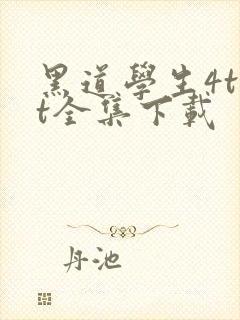 黑道學生4t
t全集下載
丹池